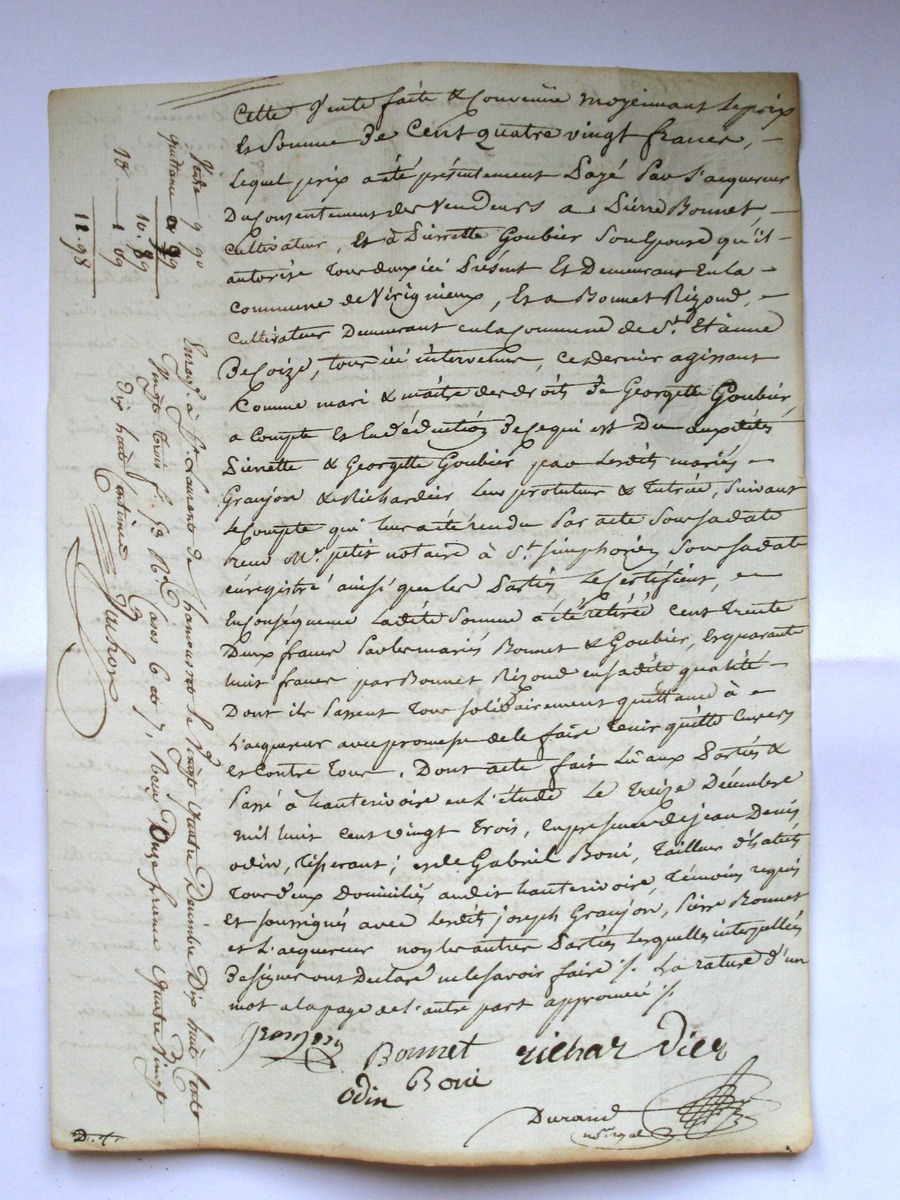 Cette Vente faite & Convenüe moyennant le prix
Et Somme de Cent quatre vingt francs, –
Lequel prix a été présentement Payé Par L'acquereur
Du Consentement des Vendeurs a Pierre Bonnet, –
Cultivateur, Et à Pierrette Goubier Son Epouse qu'il –
autorise Tous deux ici Présent Et Demeurant En la –
Commune de Virigneux, Et a Bonnet Rizoud, –
Cultivateur Demeurant en la Commune de St. Etienne
De Coize, tous ici intervenus, ce dernier agissant
Comme mari & maitre des droits de Georgette Goubier
a Compte Et En déduction de ce qui est Du auxdites
Pierrette & Georgette Goubier par Lesdits mariés –
Granjon & Richardier Leur protuteur & Tutrice, Suivant
le Compte qui leur a été rendu Par acte Sous sa date
reçu Me. petit notaire à St. Simphorien Sous sa date
enrégistré ainsi que les Parties Le Certifient, –
En Conséquence Ladite Somme a été retirée Cent Trente
Deux francs Par les mariés Bonnet & Goubier, Et quarante
huit francs par Bonnet Rizoud en sadite qualité –
Dont ils Passent Tous solidairement quittance à –
L'acquereur avec promesse de le faire Tenir quitte Envers
Et Contre Tous. Dont acte fait Lû aux Parties &
Passé à hauterivoire en L'étude Le Treize Décembre
mil huit Cent vingt Trois, En presence de jean Denis
odin, Tisserant; et de Gabriel Boni, Tailleur d'habits
Tous deux Domiciliés audit hauterivoire, Témoins requis
Et soussignés avec Lesdits joseph Granjon, Pierre Bonnet
et L'acquereur non les autres Parties Lesquelles interpellées
De signer ont Declaré ne le savoir faire ./. La rature d'un
mot a la page de l'autre part approuvée ./.
Granjon
Bonnet richardier
odin Boni
Durand
not. royal
D. f.
Vente 9 90
quittance 99
10. 89
18 — 1 09
11. 98
Enregé. à St. Laurent de Chamousset le Vingt quatre Décembre Dix huit Cents
Vingt trois fo. 53 Ro. Cases 6 et 7, Reçu Onze francs Quatre Vingt
Dix huit Centimes